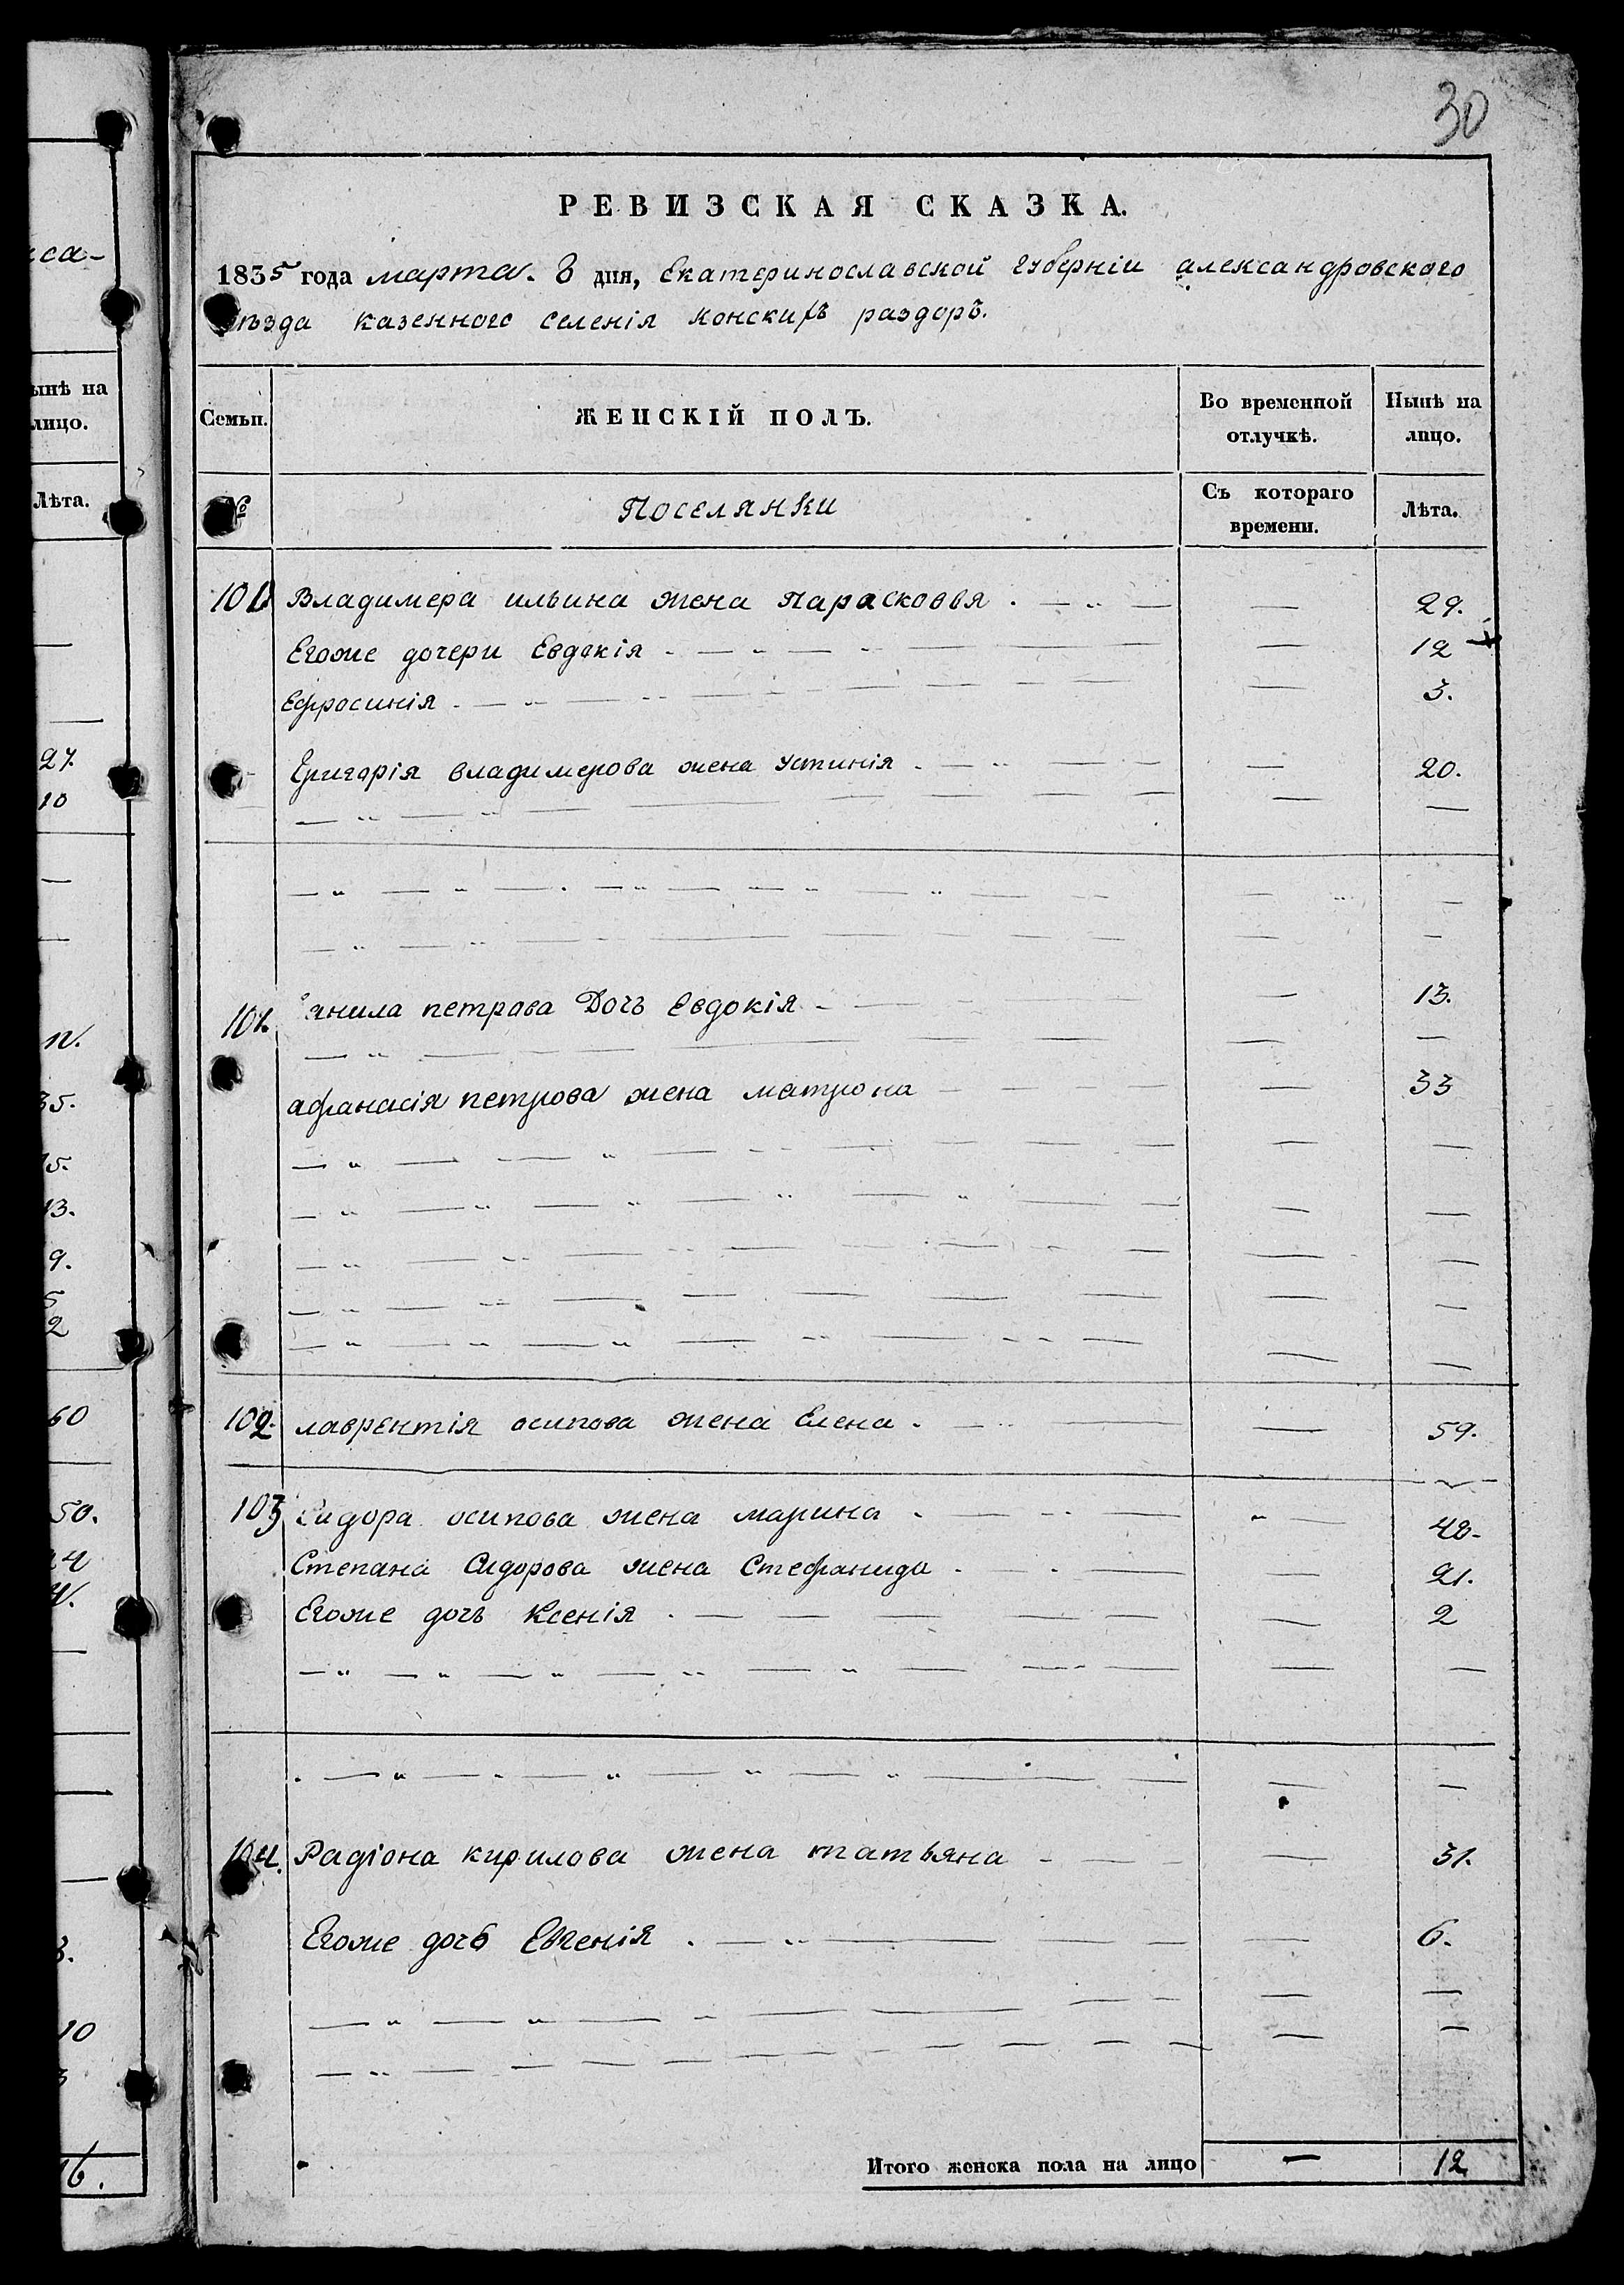 30
РЕВИЗСКАЯ СКАЗКА.
1835 года марта. 8 дня, Екатеринославской губерніи александровского
уѣзда казенного селенія Конскихъ раздоръ.
Семьи. ЖЕНСКІЙ ПОЛЪ. Во временной отлучкѣ. Нынѣ на лицо.
№ Поселянки Съ котораго времени. Лѣта.
100 Владимера ильина жена парасковья . — — 29.
Егоже дочери Евдокія — — 12
Ефросинія — — 3.
Григорія владимерова жена устинія — — 20.
101. Данила петрова Дочь Евдокія — — 13.
афанасія петрова жена матрона — — 33
102. лаврентія осипова жена Елена . — — 59.
103 Сидора осипова жена марина . — — 48.
Степана Сидорова жена Стефанида . — — 21.
Егоже дочь Ксенія . — — 2
104. Радіона кирилова жена татьяна — — 31.
Егоже дочь Евгенія . — — 6.
Итого женска пола на лицо — 12
ынѣ на
лицо.
Лѣта.
27.
10
35.
15.
13.
9.
5
2
60
50.
10
16.